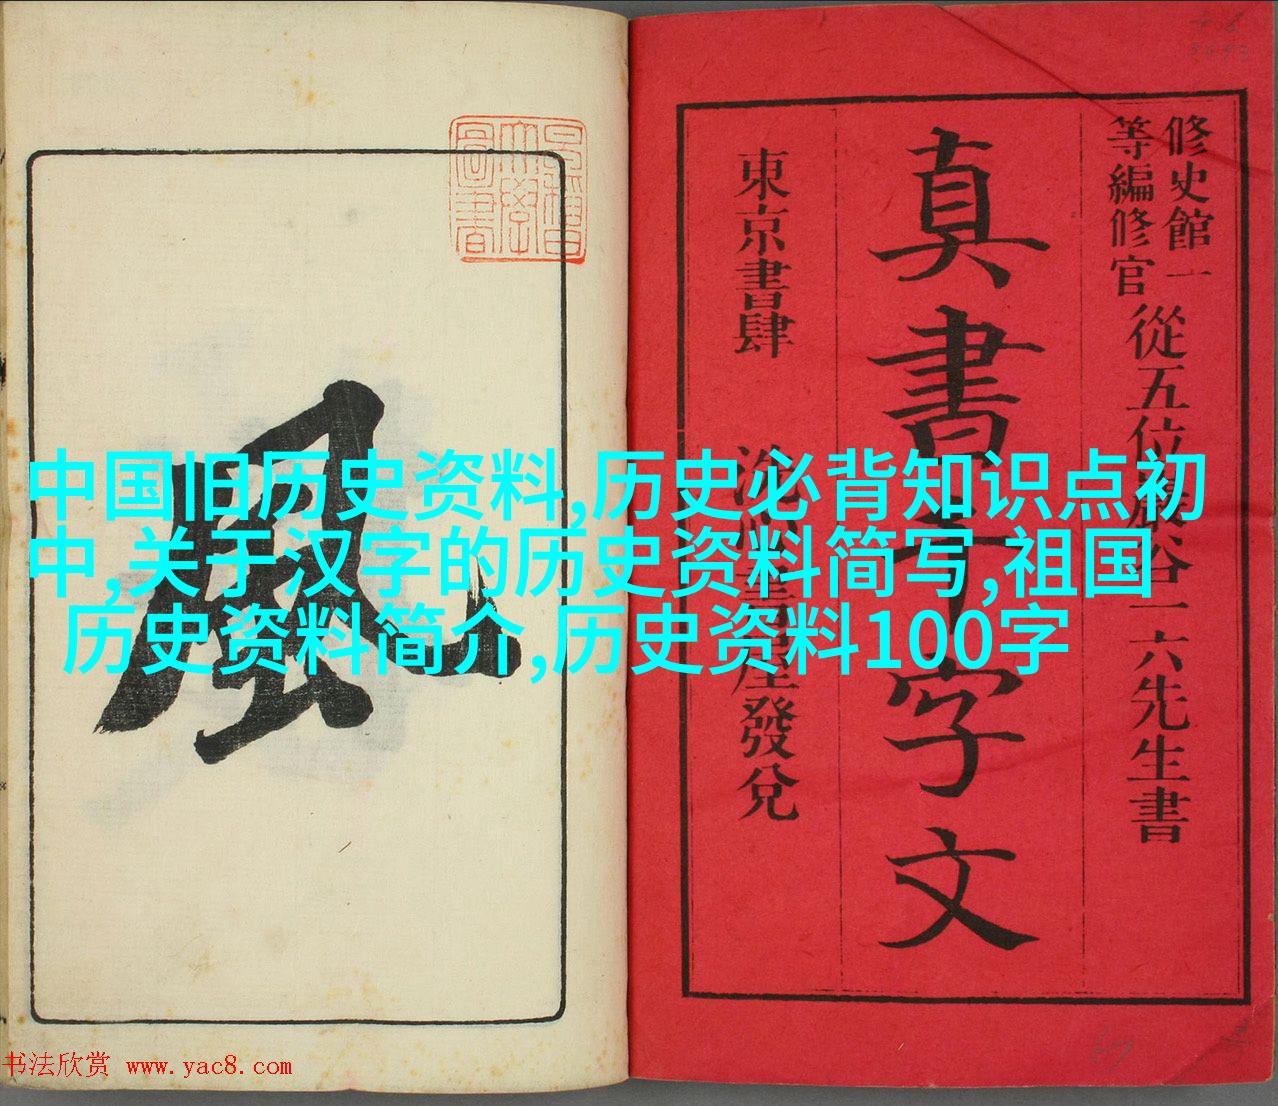 修史館一
等編修官
從五位巖谷一六先生書
真書千字文
東京書肆
發兌
風
中国旧历史资料,历史必背知识点初
中,关于汉字的历史资料简写,祖国
历史资料简介,历史资料100字
书法欣赏 www.yac8.com